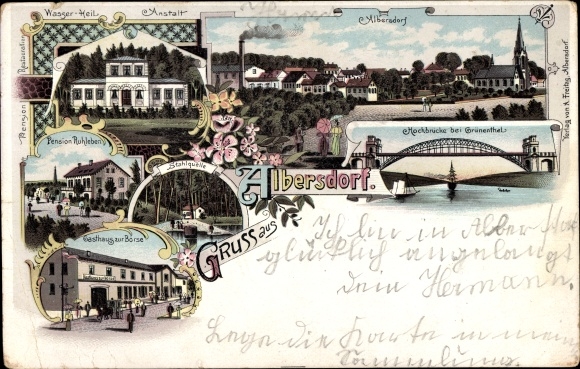 Wasser-Heil Anstalt
Pension Restauration
Albersdorf
Hochbrücke bei Grünenthal
Verlag von A. Freitag, Albersdorf.
Pension Ruhleben
Stahlquelle
Gasthaus zur Börse
Gruss aus
Albersdorf.
Ich bin in Alber
glücklich angelangt
dein Hermann.
Lege die Karte in mein
Sammlung.